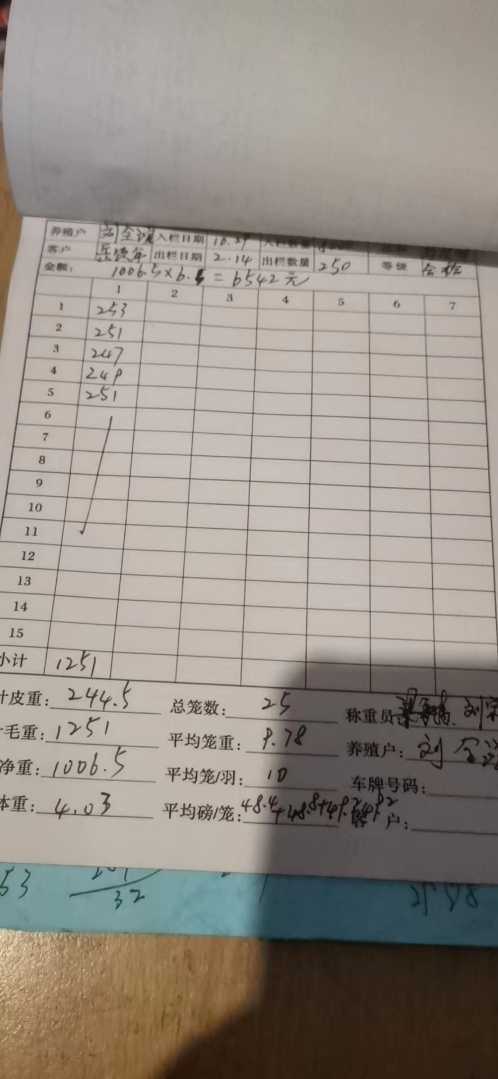 养殖户 刘全 入栏日期 10.29 入栏数量
客户 出栏日期 2.14 出栏数量 250 等级 合格
金额: 1006.5×6.5=6542元
1 2 3 4 5 6 7
1 253
2 251
3 247
4 249
5 251
6
7
8
9
10
11
12
13
14
15
小计 1251
计皮重: 244.5 总笼数: 25 称重员 刘
毛重: 1251 平均笼重: 9.78 养殖户: 刘全
净重: 1006.5 平均笼/羽: 10 车牌号码:
体重: 4.03 平均磅/笼: 48.4+48.8+49.2+49.2 客户:
53 32